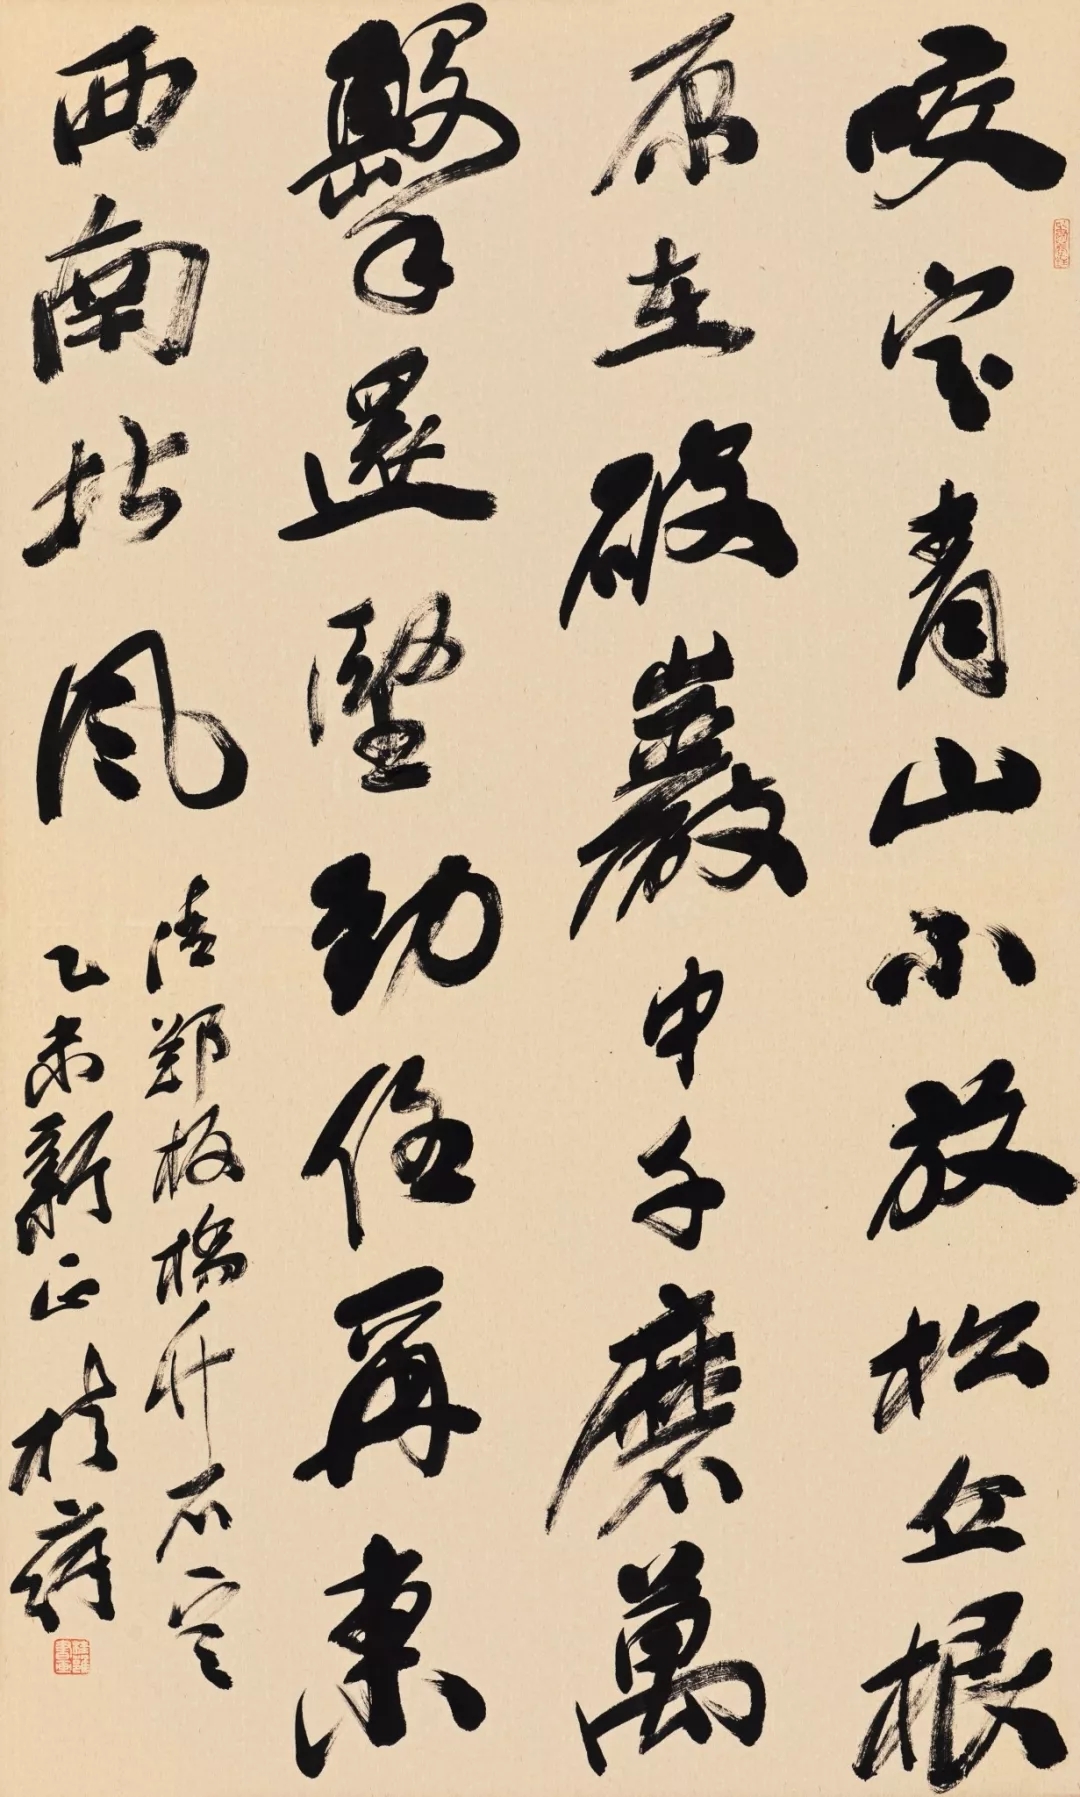 咬定青山不放松立根
原在破巖中千磨萬
擊還堅勁任爾東
西南北風
清鄭板橋竹石
乙未新正